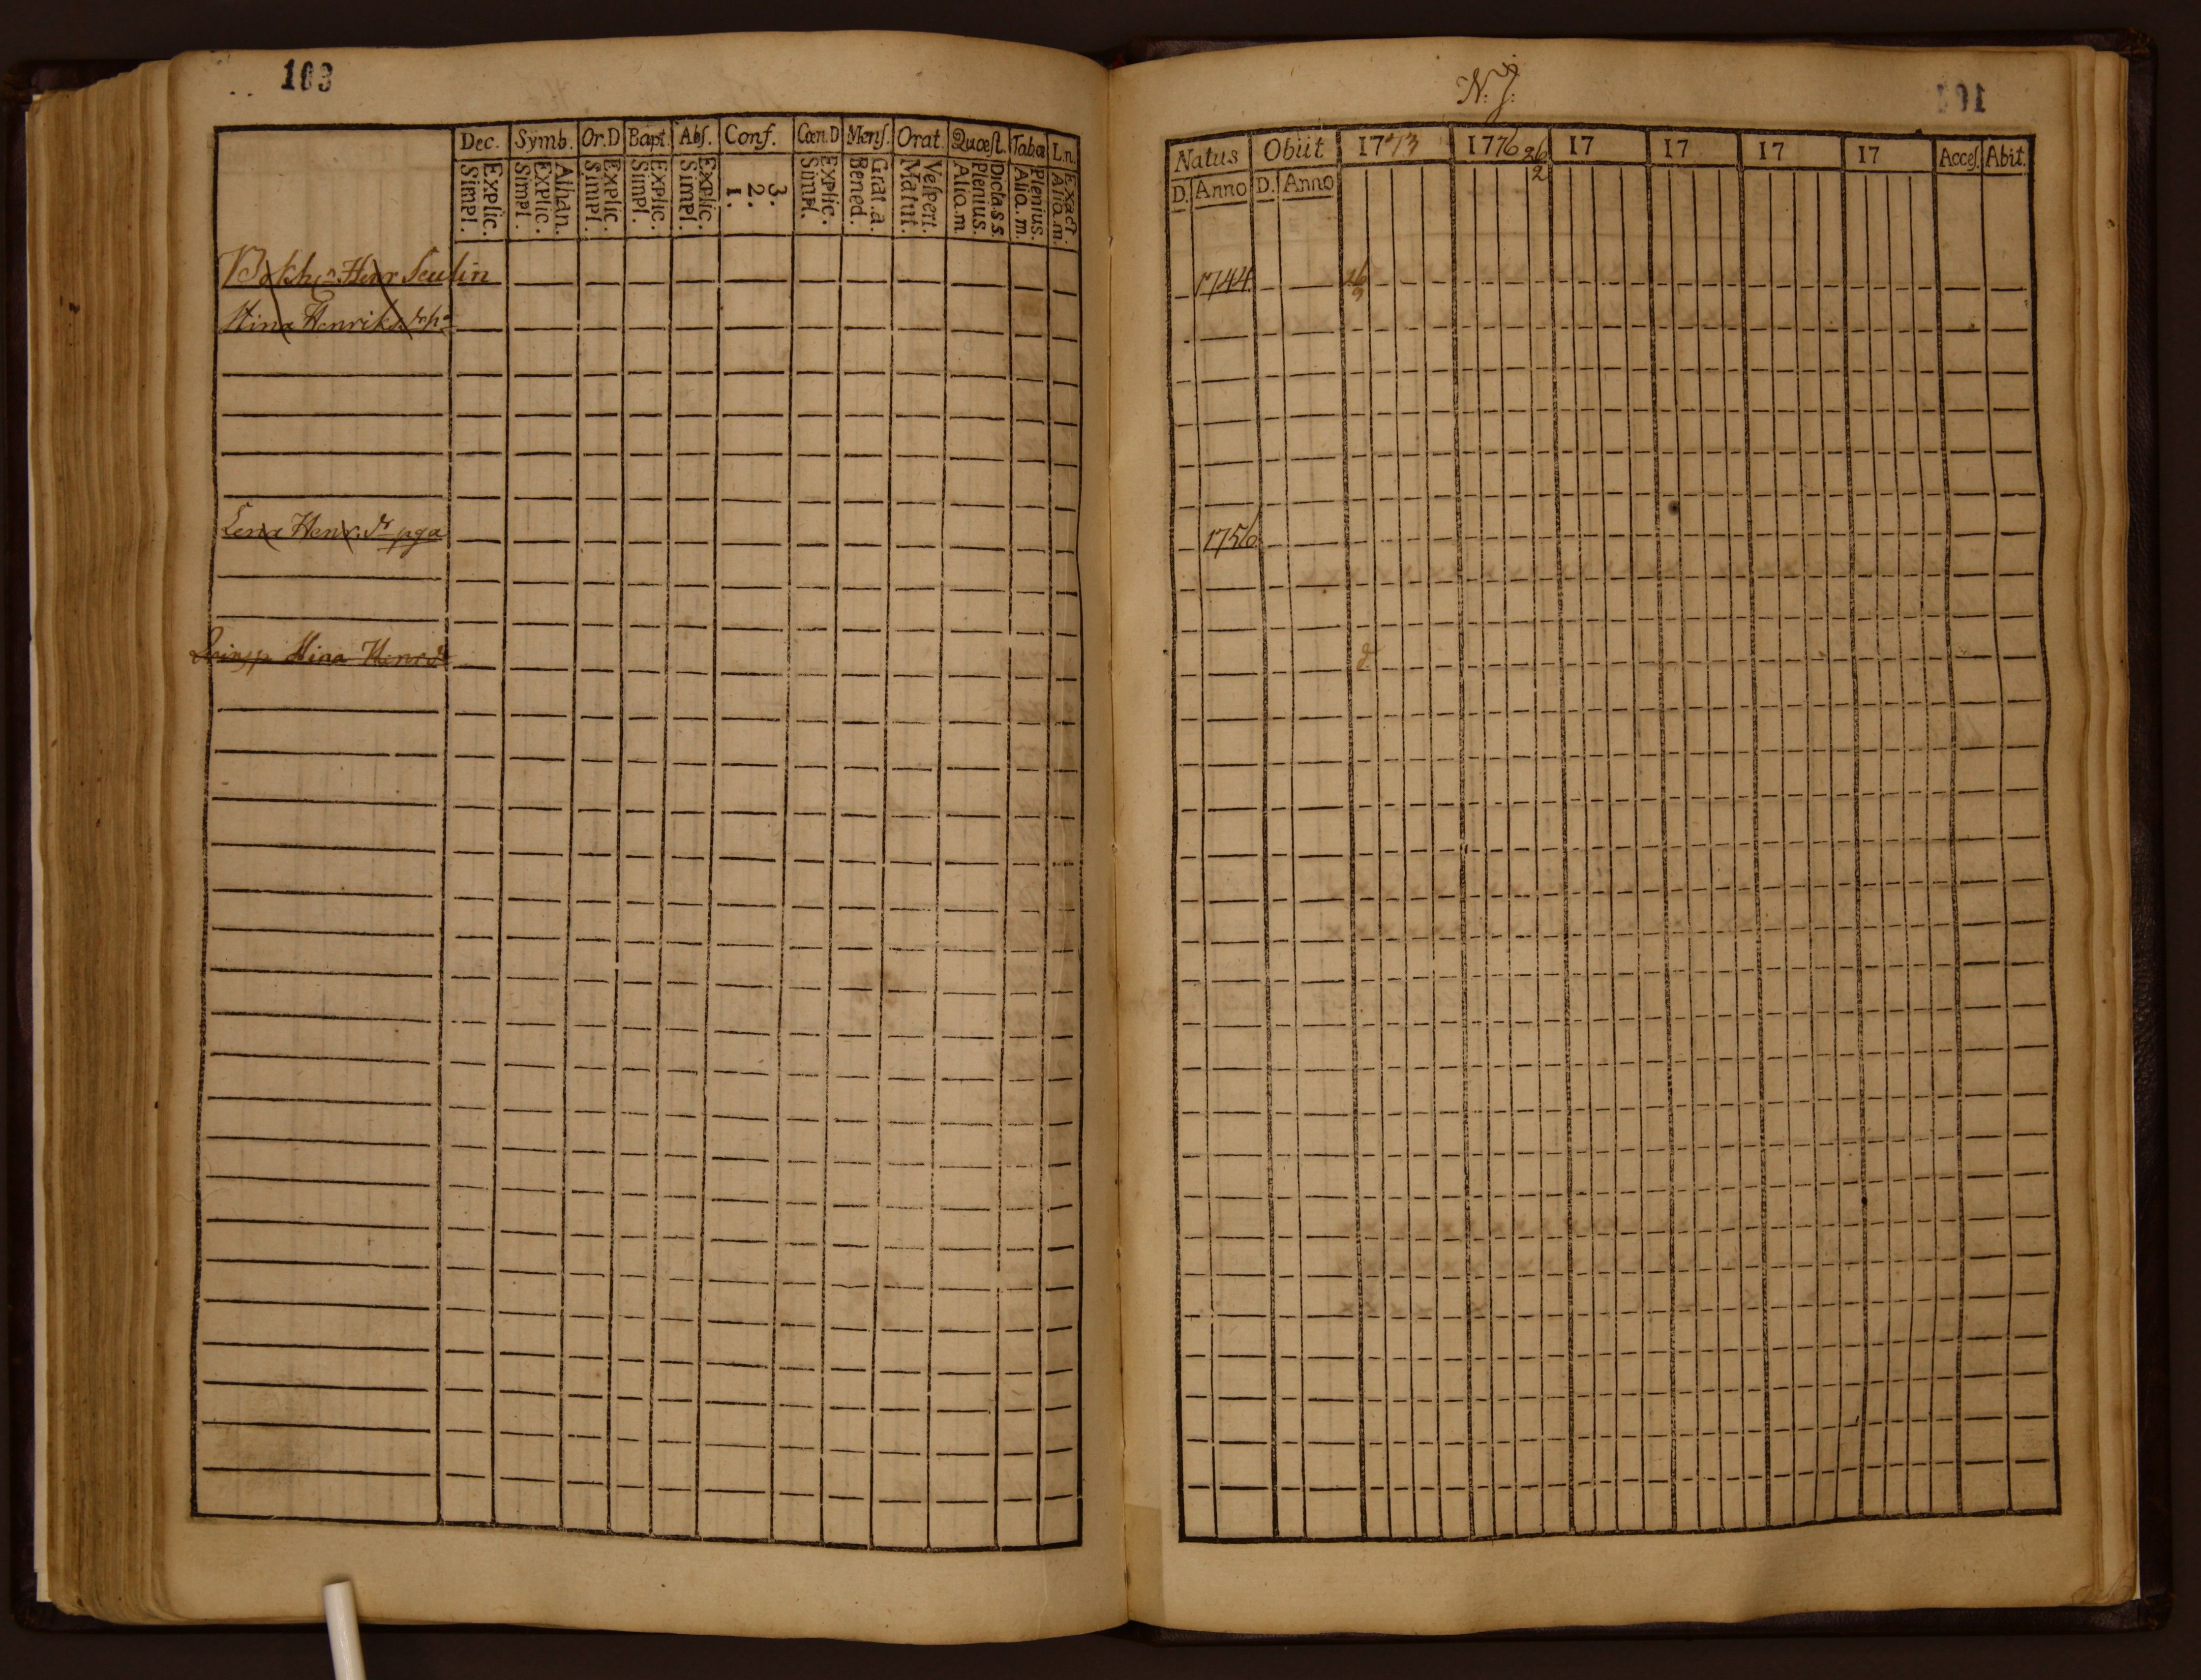 103
Dec. Symb. Or.D Bapt. Abſ. Conf. Cœn.D Menſ. Orat. Quæſt. Taba L.n.
Explic. Simpl. Athan. Explic. Simpl. Explic. Simpl. Explic. Simpl. Explic. Simpl. 3. 2. 1. Explic. Simpl. Grat.a. Bened. Veſpert. Matut. Dicta s s. Plenius. Alio.m. Plenius. Alio.m. Exact. Alio.m.
Henr
Stina Henriks
Lena Henr. dr pga
Stina Henrsdr
N: J:
101
Natus Obiit 1773 1776 26 2 17 17 17 17 Acceſ. Abit.
D. Anno D. Anno
1744
1756